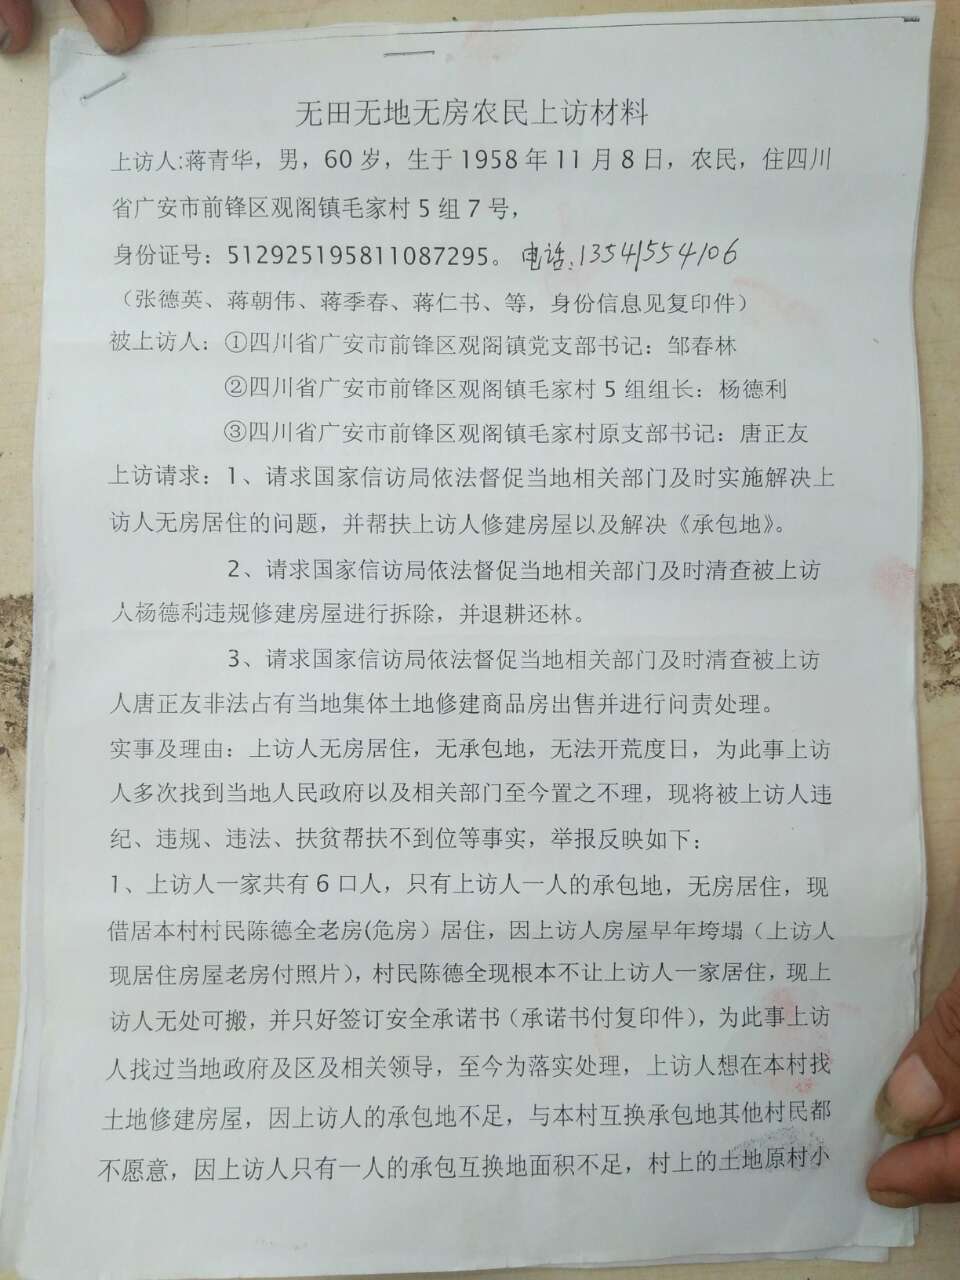 无田无地无房农民上访材料
上访人:蒋青华，男，60 岁，生于 1958 年 11 月 8 日，农民，住四川
省广安市前锋区观阁镇毛家村 5 组 7 号，
身份证号：512925195811087295。电话:13541554106
（张德英、蒋朝伟、蒋季春、蒋仁书、等，身份信息见复印件）
被上访人：①四川省广安市前锋区观阁镇党支部书记：邹春林
②四川省广安市前锋区观阁镇毛家村 5 组组长：杨德利
③四川省广安市前锋区观阁镇毛家村原支部书记：唐正友
上访请求：1、请求国家信访局依法督促当地相关部门及时实施解决上
访人无房居住的问题，并帮扶上访人修建房屋以及解决《承包地》。
2、请求国家信访局依法督促当地相关部门及时清查被上访
人杨德利违规修建房屋进行拆除，并退耕还林。
3、请求国家信访局依法督促当地相关部门及时清查被上访
人唐正友非法占有当地集体土地修建商品房出售并进行问责处理。
实事及理由：上访人无房居住，无承包地，无法开荒度日，为此事上访
人多次找到当地人民政府以及相关部门至今置之不理，现将被上访人违
纪、违规、违法、扶贫帮扶不到位等事实，举报反映如下：
1、上访人一家共有 6 口人，只有上访人一人的承包地，无房居住，现
借居本村村民陈德全老房(危房）居住，因上访人房屋早年垮塌（上访人
现居住房屋老房付照片），村民陈德全现根本不让上访人一家居住，现上
访人无处可搬，并只好签订安全承诺书（承诺书付复印件），为此事上访
人找过当地政府及区及相关领导，至今为落实处理，上访人想在本村找
土地修建房屋，因上访人的承包地不足，与本村互换承包地其他村民都
不愿意，因上访人只有一人的承包互换地面积不足，村上的土地原村小